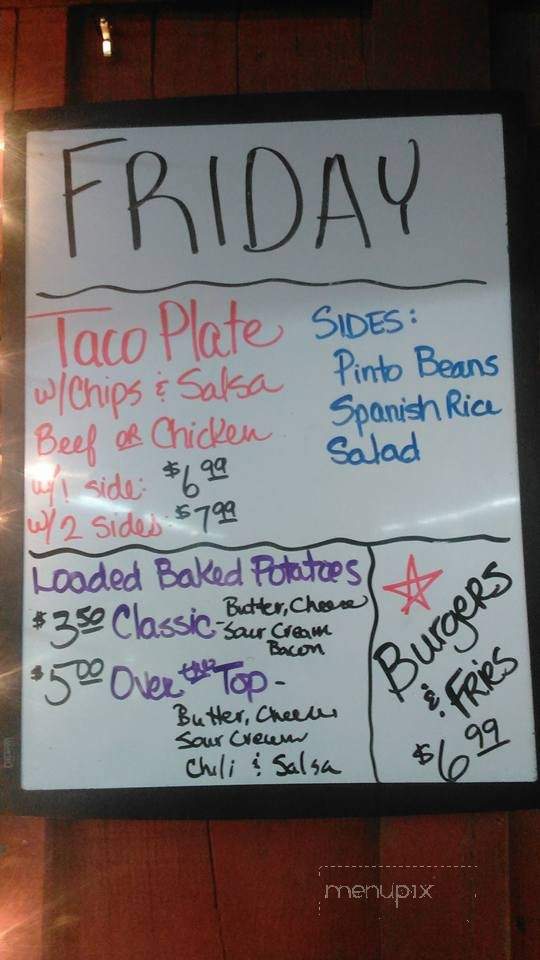 FRIDAY
Taco Plate
w/Chips & Salsa
Beef or Chicken
w/1 side: $6.99
w/2 sides: $7.99
SIDES:
Pinto Beans
Spanish Rice
Salad
Loaded Baked Potatoes
$3.50 Classic - Butter, Cheese
Sour Cream
Bacon
$5.00 Over the Top -
Butter, Cheese
Sour Cream
Chili & Salsa
Burgers
& Fries
$6.99
menupix